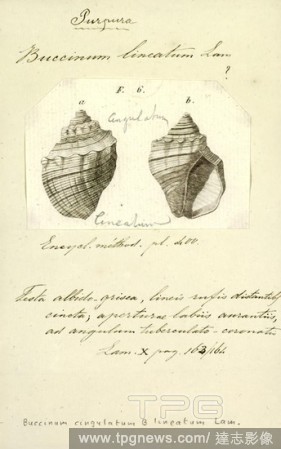 Purpura
Buccinum lineatum Lam
?
F. 6.
a b.
cingulatum
Lineatum
Encycl. méthod. pl. 400.
Testa albido-grisea, lineis rufis distantibus
cincta; aperturæ labiis aurantiis,
ad angulum tuberculato-coronatis
Lam. X pag. 163/164
TPG
Buccinum cingulatum B lineatum Lam.
www.tpgnews.com/達志影像